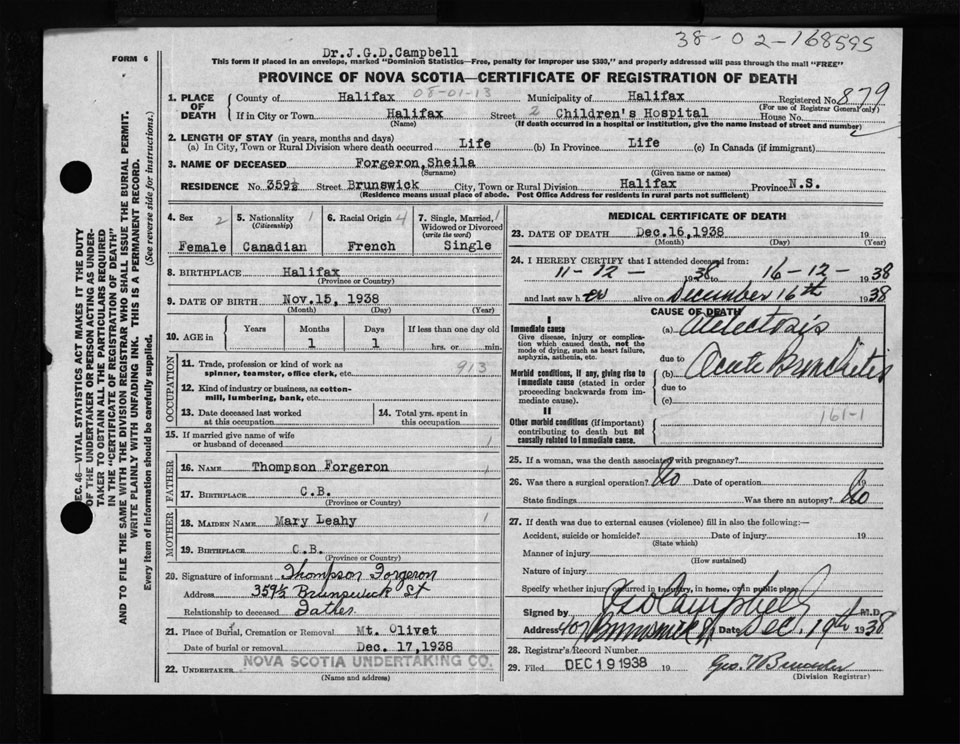 38-02-168595
Dr.J.G.D.Campbell
FORM 6
This form if placed in an envelope, marked "Dominion Statistics—Free, penalty for improper use $300," and properly addressed will pass through the mail "FREE"
PROVINCE OF NOVA SCOTIA—CERTIFICATE OF REGISTRATION OF DEATH
1. PLACE OF DEATH
County of Halifax 08-01-13 Municipality of Halifax Registered No. 879
(For use of Registrar General only)
If in City or Town Halifax Street 2 Children's Hospital House No.
(Name) (If death occurred in a hospital or institution, give the name instead of street and number)
2. LENGTH OF STAY (in years, months and days)
(a) In City, Town or Rural Division where death occurred Life (b) In Province Life (c) In Canada (if immigrant)
3. NAME OF DECEASED Forgeron, Sheila
(Surname) (Given name or names)
RESIDENCE No. 359½ Street Brunswick City, Town or Rural Division Halifax Province N.S.
(Residence means usual place of abode. Post Office Address for residents in rural parts not sufficient)
4. Sex 2 Female
5. Nationality (Citizenship) 1 Canadian
6. Racial Origin 4 French
7. Single, Married, Widowed or Divorced (write the word) 1 Single
8. BIRTHPLACE Halifax
(Province or Country)
9. DATE OF BIRTH Nov.15, 1938
(Month) (Day) (Year)
10. AGE in Years Months Days If less than one day old
1 1 hrs. or min.
OCCUPATION
11. Trade, profession or kind of work as spinner, teamster, office clerk, etc. 913
12. Kind of industry or business, as cotton-mill, lumbering, bank, etc.
13. Date deceased last worked at this occupation
14. Total yrs. spent in this occupation
15. If married give name of wife or husband of deceased 1
FATHER
16. NAME Thompson Forgeron 1
17. BIRTHPLACE C.B.
(Province or Country)
MOTHER
18. MAIDEN NAME Mary Leahy 1
19. BIRTHPLACE C.B.
(Province or Country)
20. Signature of informant Thompson Forgeron
Address 359½ Brunswick St
Relationship to deceased Father
21. Place of Burial, Cremation or Removal Mt. Olivet
Date of burial or removal Dec. 17,1938
22. UNDERTAKER NOVA SCOTIA UNDERTAKING CO.
(Name and address)
MEDICAL CERTIFICATE OF DEATH
23. DATE OF DEATH Dec.16,1938 19
(Month) (Day) (Year)
24. I HEREBY CERTIFY that I attended deceased from:
11-12- 1938 to 16-12- 1938
and last saw her alive on December 16th 1938
CAUSE OF DEATH
I
Immediate cause
Give disease, injury or complication which caused death, not the mode of dying, such as heart failure, asphyxia, asthenia, etc.
(a) Atelectosis
due to
Morbid conditions, if any, giving rise to immediate cause (stated in order proceeding backwards from immediate cause).
(b) Acute Bronchitis
due to
(c)
II
Other morbid conditions (if important) contributing to death but not causally related to immediate cause.
161-1
25. If a woman, was the death associated with pregnancy?
26. Was there a surgical operation? No Date of operation 19
State findings Was there an autopsy? No
27. If death was due to external causes (violence) fill in also the following:—
Accident, suicide or homicide? Date of injury 19
(State which)
Manner of injury
(How sustained)
Nature of injury
Specify whether injury occurred in industry, in home, or in public place
Signed by JGD Campbell M.D.
Address 407 Brunswick St Date Dec. 19th 1938
28. Registrar's Record Number
29. Filed DEC 19 1938 19
(Division Registrar)
SEC. 46—VITAL STATISTICS ACT MAKES IT THE DUTY
OF THE UNDERTAKER OR PERSON ACTING AS UNDER-
TAKER TO OBTAIN ALL THE PARTICULARS REQUIRED
IN THE "CERTIFICATE OF REGISTRATION OF DEATH"
AND TO FILE THE SAME WITH THE DIVISION REGISTRAR WHO SHALL ISSUE THE BURIAL PERMIT.
WRITE PLAINLY WITH UNFADING INK. THIS IS A PERMANENT RECORD.
Every item of information should be carefully supplied. (See reverse side for instructions.)